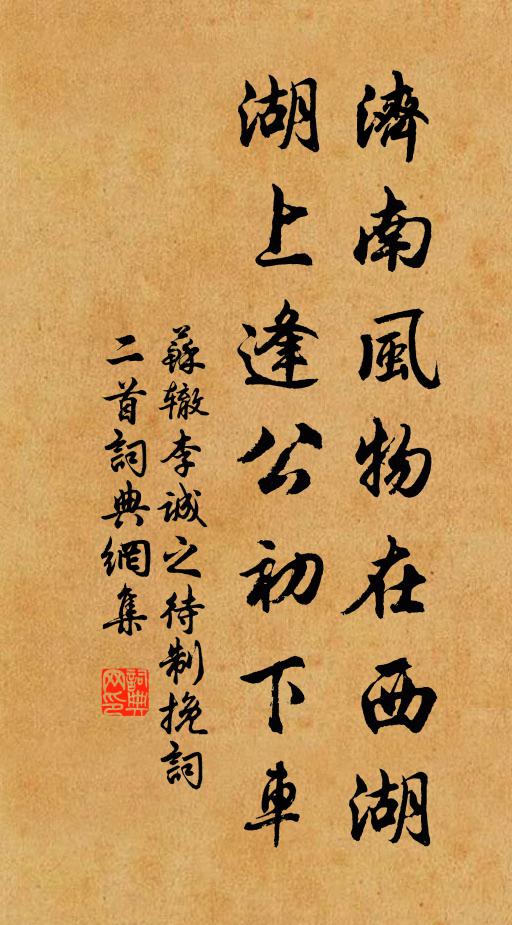 濟南風物在西湖
湖上逢公初下車
蘇辙李诚之待制挽詞
二首詞典網集
詞典网印